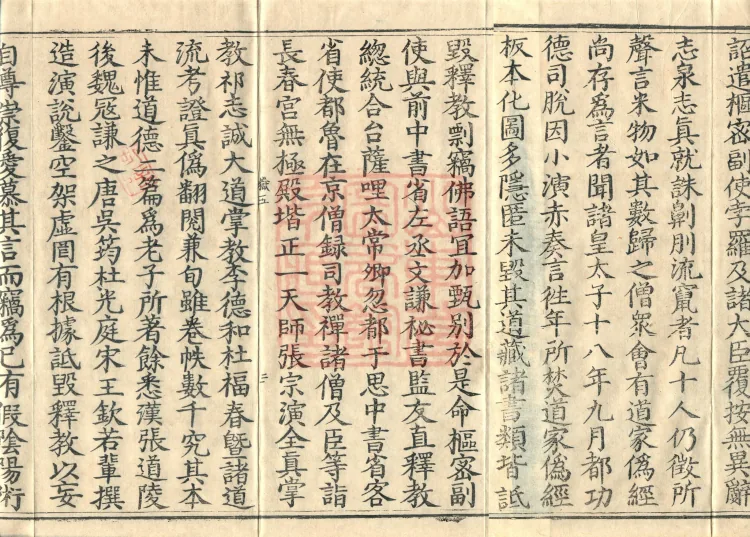 詔遣樞密副使孛羅及諸大臣覆按無異辭
志泉志眞就誅劓刖流竄者凡十人仍徵所
聲言米物如其數歸之僧衆會有道家偽經
尚存為言者聞諸皇太子十八年九月都功
德司脫因小演赤奏言徃年所焚道家偽經
板本化圖多隱匿未毀其道藏諸書類皆詆
毀釋教剽竊佛語宜加甄別於是命樞密副
使與前中書省左丞文謙秘書監友直釋教
總統合台薩哩太常卿忽都于思中書省客
省使都魯在京僧録司教禪諸僧及臣等詣
長春宮無極殿堦正一天師張宗演全眞掌
教祁志誠大道掌教李德和杜福春暨諸道
流考證眞偽翻閱兼旬雖卷帙數千究其本
末惟道德二篇為老子所著餘悉漢張道陵
後魏冦謙之唐吳筠杜光庭宋王欽若輩撰
造演說鑿空架虛罔有根據詆毀釋教以妄
自尊崇復愛慕其言而竊為己有假陰陽術